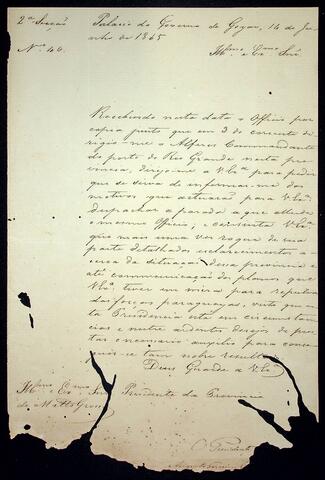 2ª Secção Palacio do Governo de Goyaz, 14 de Ju
nho de 1865
Nº 46. Illmo e Exmo Snr.
Recebendo nesta data o Officio por
copia junto que em 3 do corrente di
rigio-me o Alferes Commandante
do porto do Rio Grande nesta pro
vincia, dirijo-me a V. Exª para pedir
que se sirva de informar-me dos
motivos que actuarão para V. Exª
despachar a parada a que allude
o mesmo Officio; e consinta V. Exª
que mais uma vez rogue de sua
parte detalhados esclarecimentos a
cerca da situação dessa provincia e
até communicação dos planos que
V. Exª tiver em mira para repulsa
das forças paraguayas, visto que es
ta Presidencia está em circumstan
cias e nutre ardentes desejos de pres
tar o necessario auxilio para conse
guir-se tam nobre resultado.
Deus Guarde a V. Exª
Illmo e Exmo Snr. Presidente da Provincia
de Matto Grosso
O Presidente